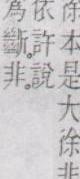 徐本是大徐非
依許說
為斷非